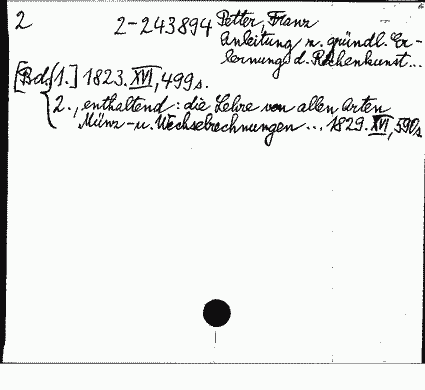 2 2-243894 Petter, Franz
Anleitung z. gründl. Er-
lernung d. Rechenkunst...
[Bd.{1.] 1823. XVI, 499 s.
2., enthaltend: die Lehre von allen Arten
Münz- u. Wechselrechnungen ... 1829. XVI, 590 s.